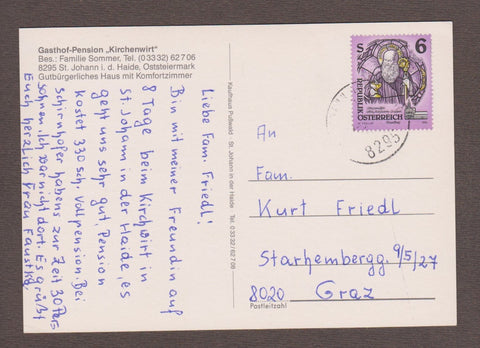 Gasthof-Pension „Kirchenwirt"
Bes.: Familie Sommer, Tel. (0 33 32) 62 7 06
8295 St. Johann i. d. Haide, Oststeiermark
Gutbürgerliches Haus mit Komfortzimmer
Liebe Fam. Friedl!
Bin mit meiner Freundin auf
8 Tage beim Kirchwirt in
St. Johann in der Haide, es
geht uns sehr gut, Pension
kostet 330 sch, Vollpension. Bei
schirnhofer habens zur Zeit 30 Pers
sohnen. Ich war nicht dort. Es grüßt
Euch herzlich Frau Faustka.
Kaufhaus Pußwald St. Johann in der Haide Tel. 0 33 32/62 7 06
S 6
REPUBLIK
ÖSTERREICH
8295
An
Fam.
Kurt Friedl
Starhembergg. 9/5/27
8020 Graz
Postleitzahl